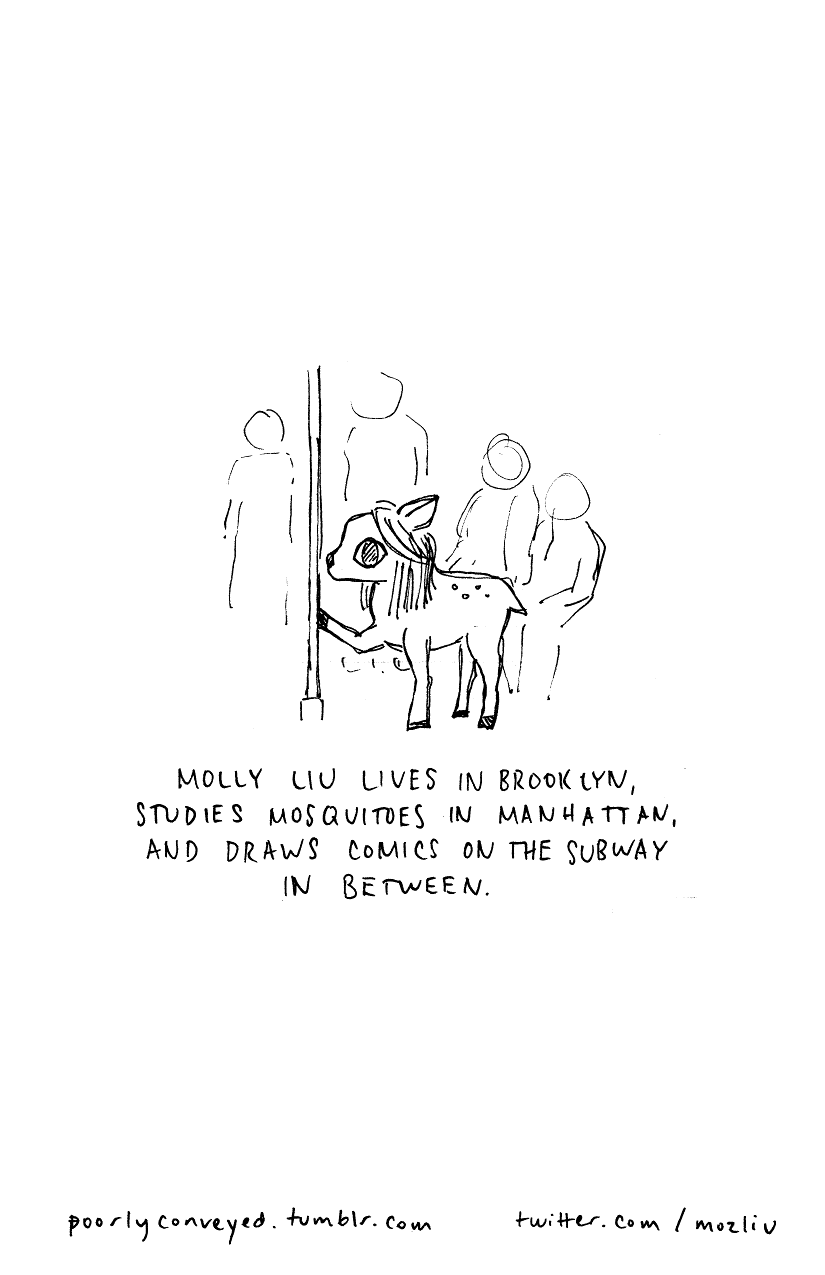 MOLLY LIU LIVES IN BROOKLYN,
STUDIES MOSQUITOES IN MANHATTAN,
AND DRAWS COMICS ON THE SUBWAY
IN BETWEEN.
poorlyconveyed.tumblr.com twitter.com/mozliu